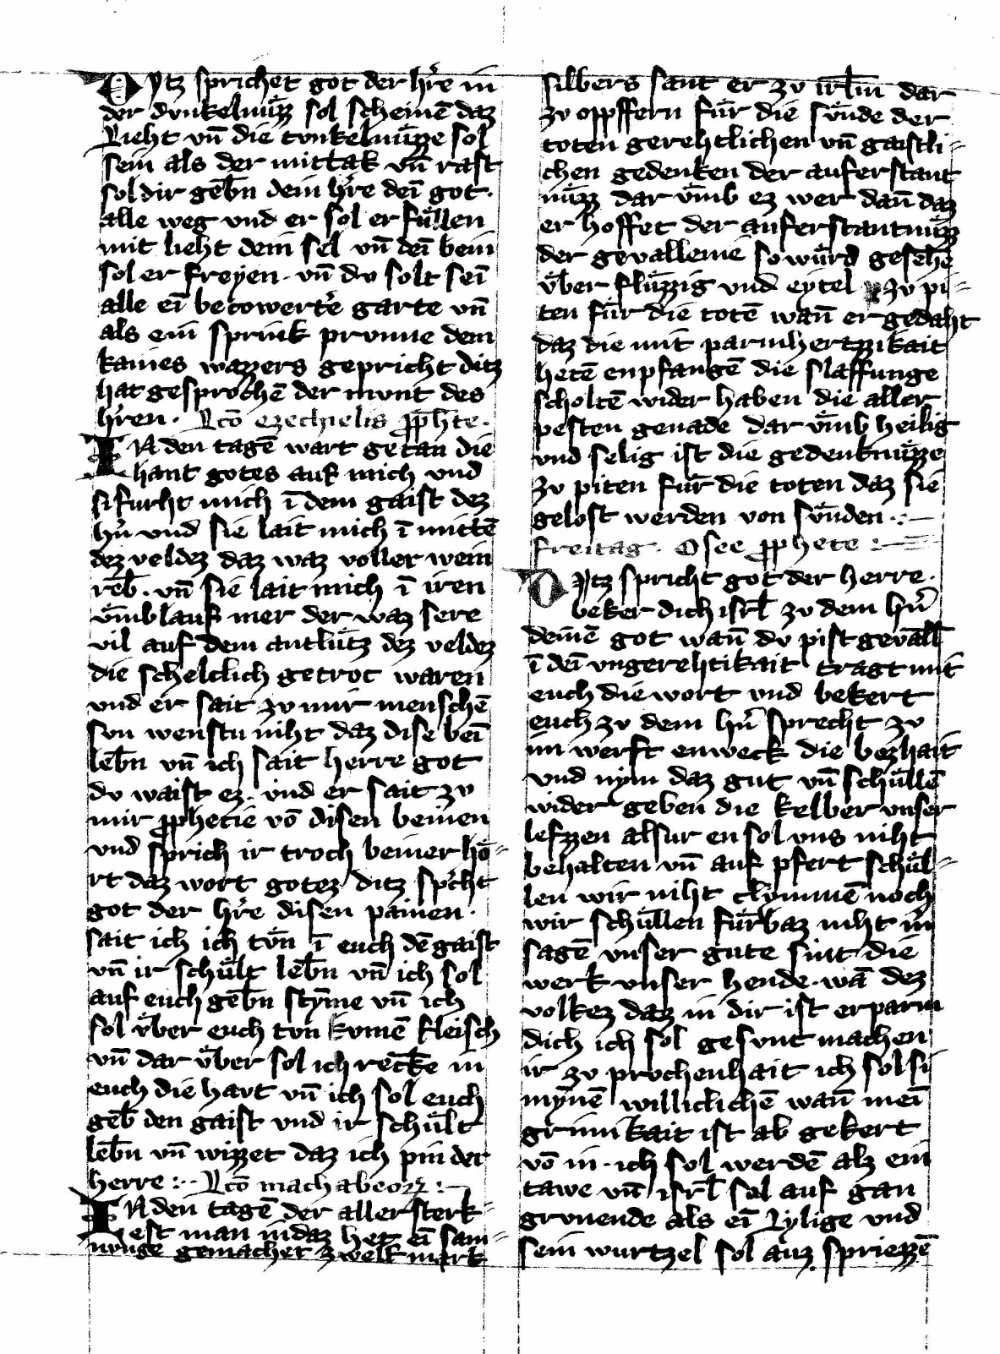 Dytz sprichet got der hr̄e in
der dvnkelnüzz sol scheinē daz
Lieht vn̄ die tvnkelnüzze sol
sein als der mittak vn̄ rast
sol dir gebn̄ dein hr̄e dei got.
alle weg vnd er sol er füllen
mit lieht dein sel vn̄ dei bein
sol er freyen. vn̄ dv solt sei
alle ei becowertē garte vn̄
als ein sprink prvnne dem
kaines wazzers gepricht ditz
hat gesprochē der mvnt des
hr̄ren. Lcō ezechielis pphte.
IN den tagē wart getan die
hant gotes auf mich vnd
si furht mich ī dem gaist dez
hn̄ vnd sie lait mich ī mittē
dez veldez daz waz voller wein
reb̄. vn̄ sie lait mich ī iren
vm̈blauf mer der waz sere
vil auf dem antlütz dez veldez
die schelclich getroc waren
vnd er sait zv mir menschē
svn wenstu niht daz dise bei
lebn̄ vn̄ ich sait herre got
dv waist ez. vnd er sait zv
mir pphecie vō disen beinen
vnd sprich ir troch beiner hö=
rt daz wort gotez ditz spcht
got der hr̄e disen painen.
sait ich ich tvn̈ ī euch dē gaist
vn̄ ir schült lebn̄ vn̄ ich sol
auf euch gebn̄ styme vn̄ ich
sol vb̈er euch tvn kvmē fleisch
vn̄ dar vb̈er sol ich reckē in
euch die havt vn̄ ich sol euch
geb̄ den gaist vnd ir schült
lebn̄ vn̄ wizzet daz ich pin der
herre :· Lcō machabeorz :·
IN den tagē der aller sterk=
est man iudaz het ei sam=
nvnge gemachet zwelf mark
silbers sant er zv irlm̄ dar
zv opffern für die svn̈de der
toten gerehtlichen vn̄ gaistli=
chen gedenken der auferstant
nüzz dar vm̈b ez wer dan̄ daz
er hoffet der auferstantnüzz
der gevallenie so würd gesehē
vb̈er flüzzig vnd eytel zv pi=
ten für die totē wan̄ er gedaht
daz die mit parmhertzzikait
hetē enpfangē die slaffunge
scholtē wider haben die aller
pesten genade dar vm̈b heilig
vnd selig ist die gedenknüzze
zv piten für die toten daz sie
gelost werden von svn̈den :·
freitag. Osee pphete :·
Dytz spricht got der herre.
beker dich isrl̄ zv dem hn̄
deinē got wan̄ dv pist gevall̄
ī dei vngerehtikait tragt mit
euch die wort vnd bekert
euch zv dem hn̄ sprecht zv
im werft enweck die bezhait
vnd nym daz gut vn̄ schüllē
wider geben die kelber vnser
lefzzen alsur en sol vns niht
behalten vn̄ auf pfert schül=
len wir niht clymmē noch
wir schüllen fürbaz niht mr̄
sagē vnser gute sint die
werk vnser hende. wā dez
volkez daz in dir ist erparm
dich ich sol gesvnt machen
ir zv prochenhait ich sol si
mynē williclichē wan̄ mei
grimikait ist ab gekert
vō in. ich sol werdē alz ein
tawe vn̄ isrl̄ sol auf gan
grvnende als ei Lylige vnd
sein wurtzel sol auz spriezzē